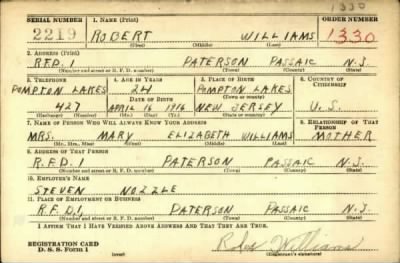 1330
SERIAL NUMBER 1. NAME (Print) ORDER NUMBER
2219 ROBERT WILLIAMS 1330
(First) (Middle) (Last)
2. ADDRESS (Print)
R.F.D. 1 PATERSON PASSAIC N.J.
(Number and street or R. F. D. number) (Town) (County) (State)
3. TELEPHONE 4. AGE IN YEARS 5. PLACE OF BIRTH 6. COUNTRY OF CITIZENSHIP
POMPTON LAKES 24 POMPTON LAKES
DATE OF BIRTH (Town or county)
427 APRIL 16 1916 NEW JERSEY U.S.
(Exchange) (Number) (Mo.) (Day) (Yr.) (State or country)
7. NAME OF PERSON WHO WILL ALWAYS KNOW YOUR ADDRESS 8. RELATIONSHIP OF THAT PERSON
MRS. MARY ELIZABETH WILLIAMS MOTHER
(Mr., Mrs., Miss) (First) (Middle) (Last)
9. ADDRESS OF THAT PERSON
R.F.D. 1 PATERSON PASSAIC N.J.
(Number and street or R. F. D. number) (Town) (County) (State)
10. EMPLOYER'S NAME
STEVEN NOZZLE
11. PLACE OF EMPLOYMENT OR BUSINESS
R.F.D. 1 PATERSON PASSAIC N.J.
(Number and street or R. F. D. number) (Town) (County) (State)
I AFFIRM THAT I HAVE VERIFIED ABOVE ANSWERS AND THAT THEY ARE TRUE.
REGISTRATION CARD
D. S. S. Form 1 (over) Robert Williams
(Registrant's signature)